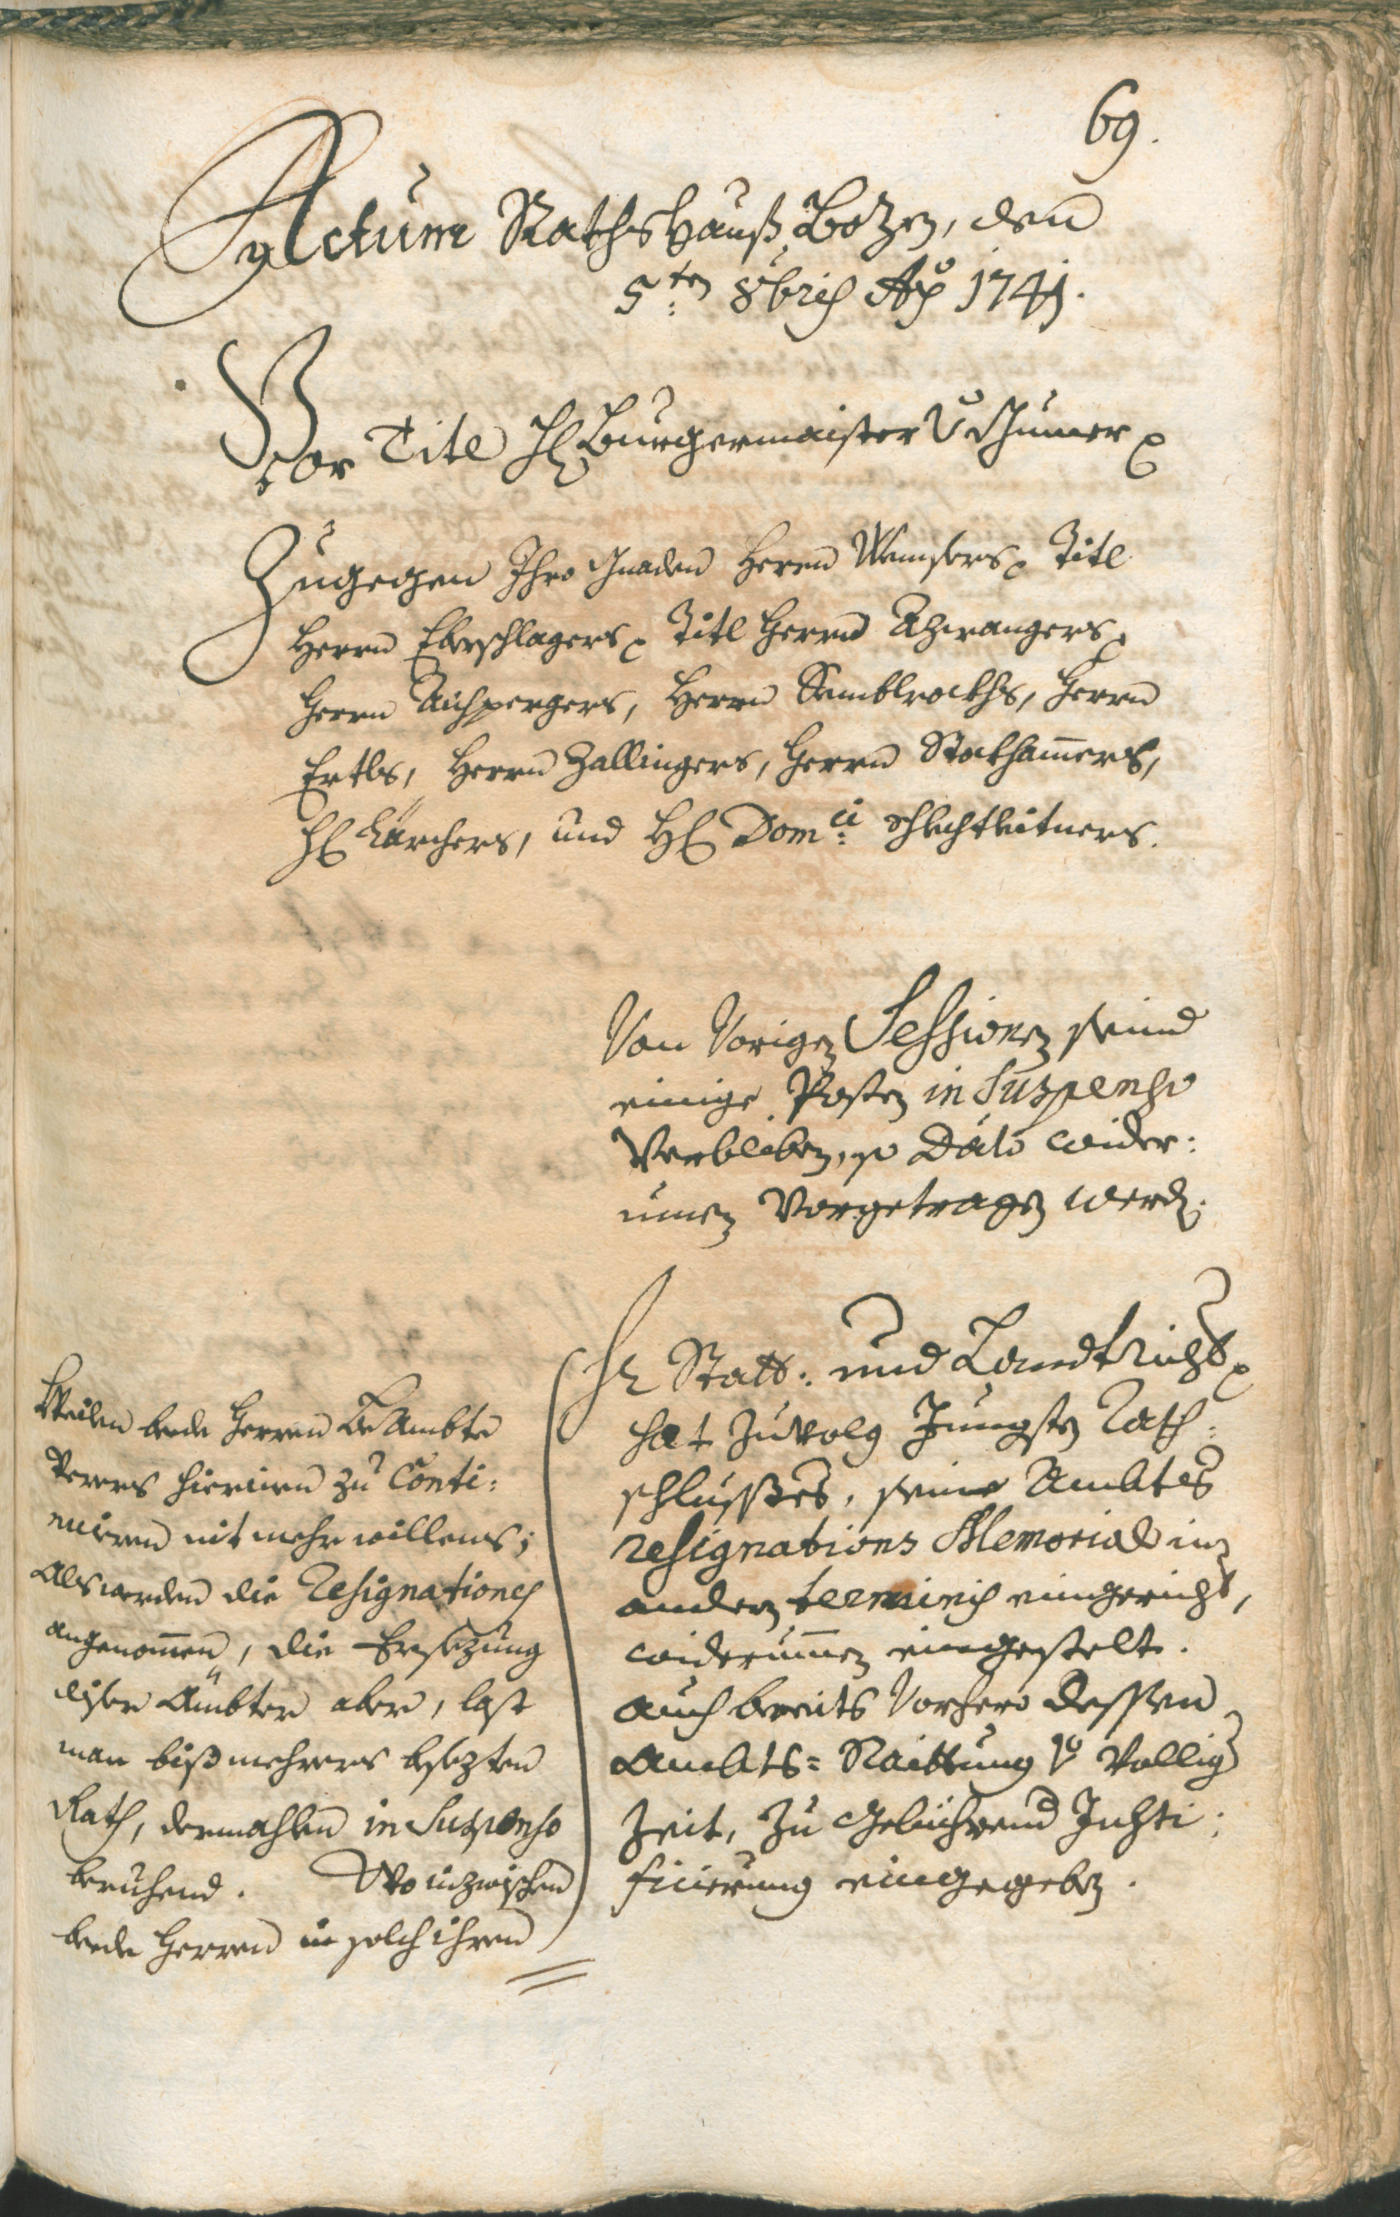 69.
Actum Rathshauß Bozen, den
5ten 8bris Ao 1741.
Vor Titl H Burgermaister
Zugegen Ihro Gnaden Herrn Titl
Herrn Eberschlagers Titl Herrn Azwangers
Herrn Aichpergers, Herrn Semblrockhs, Herrn
Ertls, Herrn Zallingers, Herrn Stockhamers,
H Larchers, und H Domci Schlechtleitners.
Von Vorigen Sessionen seind
einige Posten in Suspenso
Verbliben, so Dato wider:
umen Vorgetragen werd.
H Statt: und Landtricht
hat Zuvolg Jungsten Rath:
schlusses, seine Ambts
resignations Memorial in
andern terminis eingericht,
widerumen eingestelt.
auch bereits Vorhero dessen
Ambts= Raittung Vollig
Zeit, Zu Gebührend Justi:
ficierung eingegeben.
Weilen beede Herren Beambte
Verers hierinen zu Conti:
nuiren nit mehr willens;
Als werden die Resignationes
angenomen, die Ersezung
diser Ämbter aber, last
man biß mehrers besezten
Rath, dermahlen in Suspenso
beruhend. Wo inzwischen
beede Herren in solch ihren